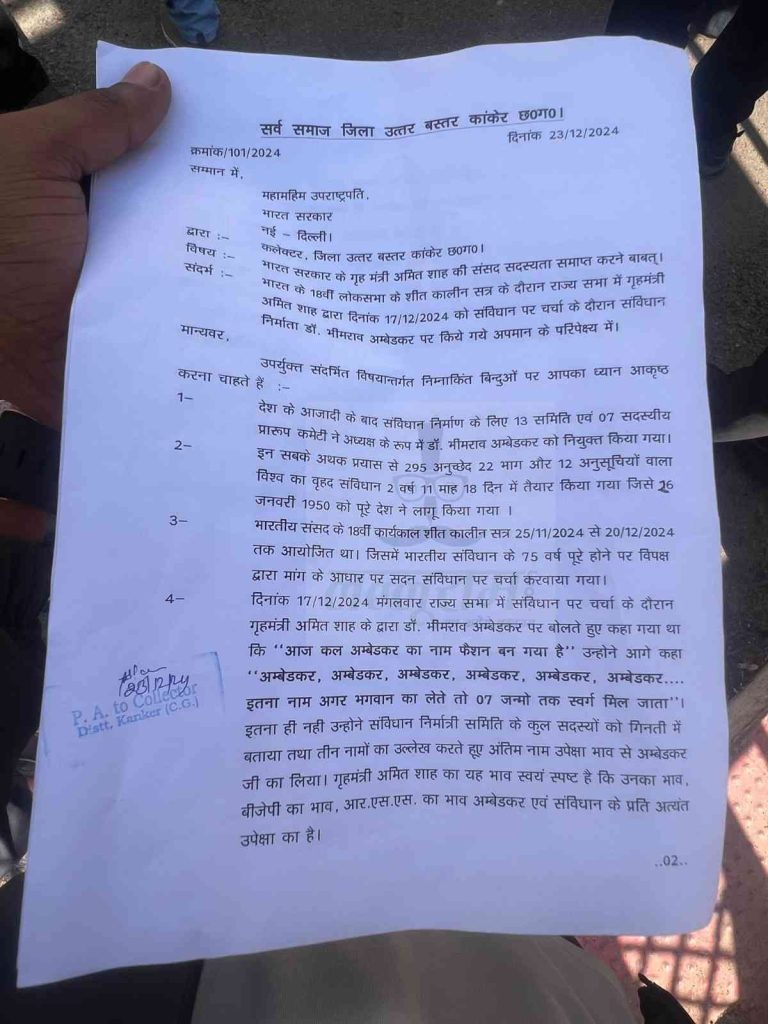 सर्व समाज जिला उत्तर बस्तर कांकेर छ0ग0।
क्रमांक/101/2024
दिनांक 23/12/2024
सम्मान में,
महामहिम उपराष्ट्रपति,
भारत सरकार
नई – दिल्ली।
द्वारा :– कलेक्टर, जिला उत्तर बस्तर कांकेर छ0ग0।
विषय :– भारत सरकार के गृह मंत्री अमित शाह की संसद सदस्यता समाप्त करने बाबत्।
संदर्भ :– भारत के 18वीं लोकसभा के शीत कालीन सत्र के दौरान राज्य सभा में गृहमंत्री
अमित शाह द्वारा दिनांक 17/12/2024 को संविधान पर चर्चा के दौरान संविधान
निर्माता डॉ. भीमराव अम्बेडकर पर किये गये अपमान के परिपेक्ष्य में।
मान्यवर,
उपर्युक्त संदर्भित विषयान्तर्गत निम्नाकिंत बिन्दुओं पर आपका ध्यान आकृष्ठ
करना चाहते हैं :–
1– देश के आजादी के बाद संविधान निर्माण के लिए 13 समिति एवं 07 सदस्यीय
प्रारूप कमेटी ने अध्यक्ष के रूप में डॉ. भीमराव अम्बेडकर को नियुक्त किया गया।
2– इन सबके अथक प्रयास से 295 अनुच्छेद 22 भाग और 12 अनुसूचियों वाला
विश्व का वृहद संविधान 2 वर्ष 11 माह 18 दिन में तैयार किया गया जिसे 26
जनवरी 1950 को पूरे देश ने लागू किया गया ।
3– भारतीय संसद के 18वीं कार्यकाल शीत कालीन सत्र 25/11/2024 से 20/12/2024
तक आयोजित था। जिसमें भारतीय संविधान के 75 वर्ष पूरे होने पर विपक्ष
द्वारा मांग के आधार पर सदन संविधान पर चर्चा करवाया गया।
4– दिनांक 17/12/2024 मंगलवार राज्य सभा में संविधान पर चर्चा के दौरान
गृहमंत्री अमित शाह के द्वारा डॉ. भीमराव अम्बेडकर पर बोलते हुए कहा गया था
कि ‘‘आज कल अम्बेडकर का नाम फैशन बन गया है’’ उन्होने आगे कहा
‘‘अम्बेडकर, अम्बेडकर, अम्बेडकर, अम्बेडकर, अम्बेडकर, अम्बेडकर....
इतना नाम अगर भगवान का लेते तो 07 जन्मो तक स्वर्ग मिल जाता’’।
इतना ही नही उन्होने संविधान निर्मात्री समिति के कुल सदस्यों को गिनती में
बताया तथा तीन नामों का उल्लेख करते हूए अंतिम नाम उपेक्षा भाव से अम्बेडकर
जी का लिया। गृहमंत्री अमित शाह का यह भाव स्वयं स्पष्ट है कि उनका भाव,
बीजेपी का भाव, आर.एस.एस. का भाव अम्बेडकर एवं संविधान के प्रति अत्यंत
उपेक्षा का है।
P. A. to Collector
Distt. Kanker (C.G.)
..02..